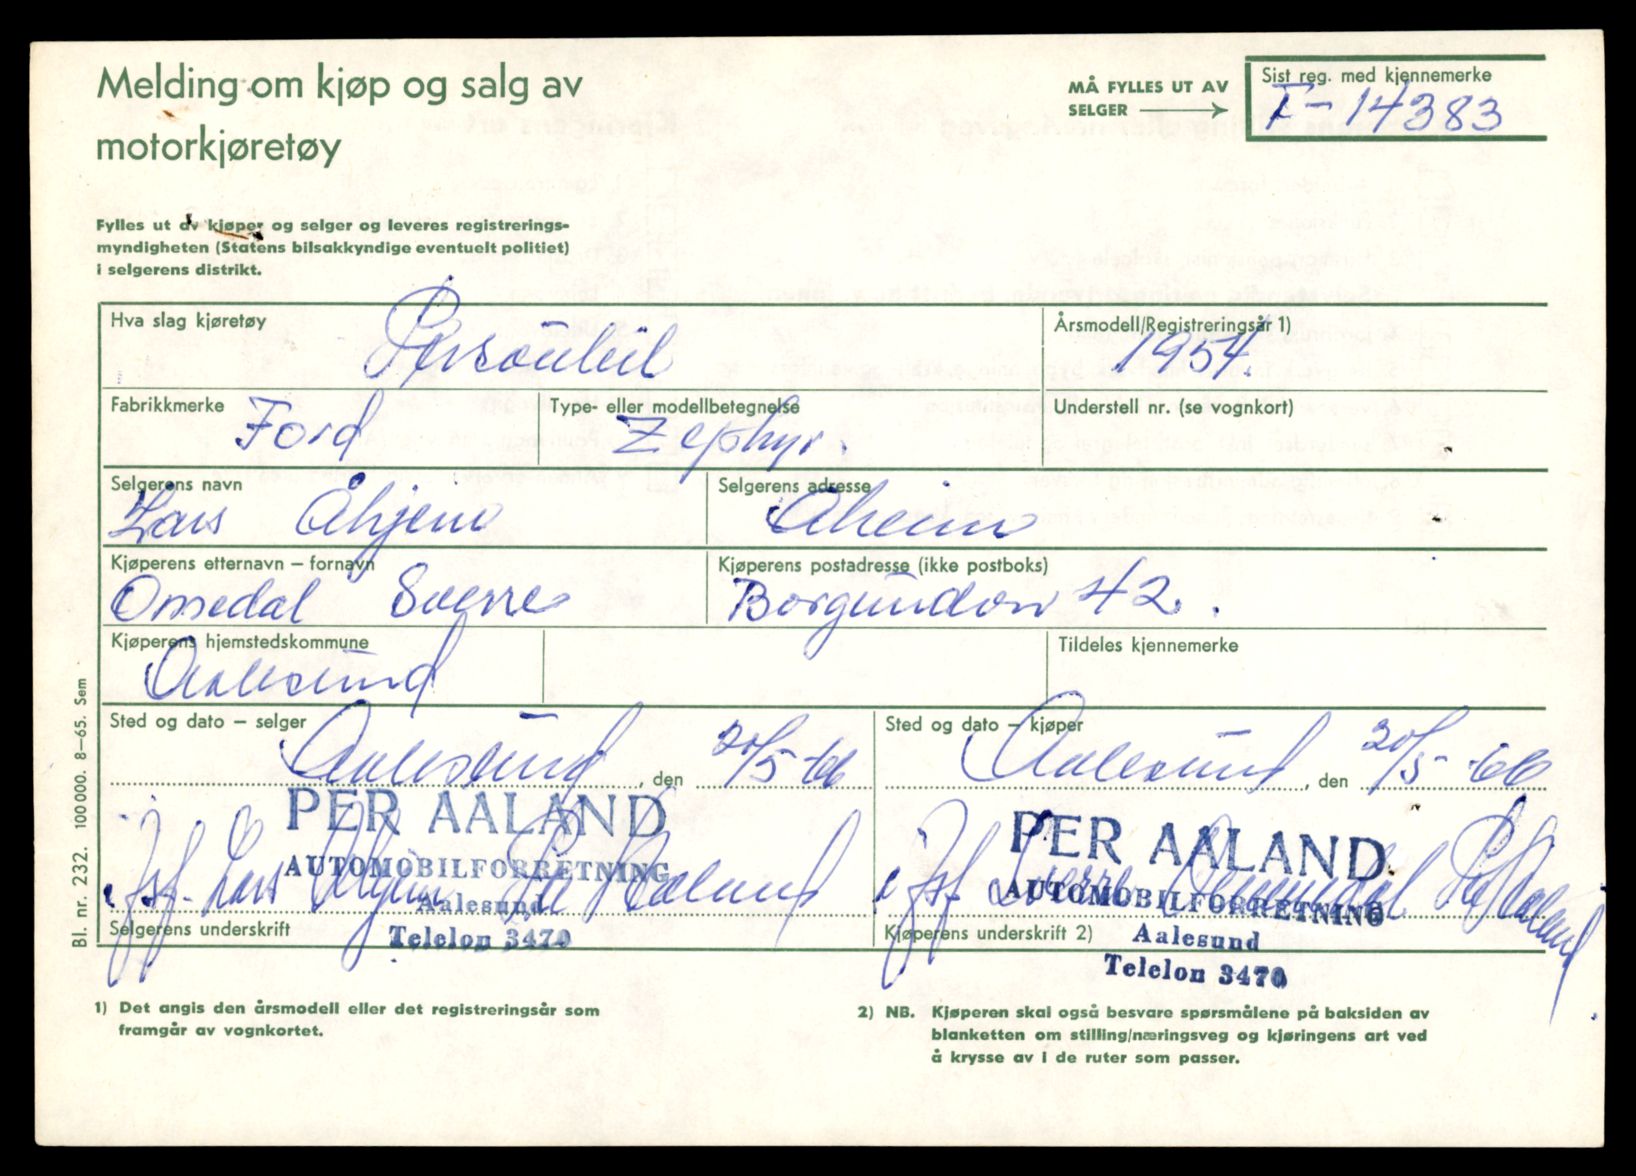 Melding om kjøp og salg av
motorkjøretøy
MÅ FYLLES UT AV
SELGER
Sist reg. med kjennemerke
T-14383
Fylles ut av kjøper og selger og leveres registrerings-
myndigheten (Statens bilsakkyndige eventuelt politiet)
i selgerens distrikt.
Hva slag kjøretøy
Personbil
Årsmodell/Registreringsår 1)
1954.
Fabrikkmerke
Ford
Type- eller modellbetegnelse
Zephyr.
Understell nr. (se vognkort)
Selgerens navn
Lars Åhjem
Selgerens adresse
Åheim
Kjøperens etternavn – fornavn
Omedal Sverre
Kjøperens postadresse (ikke postboks)
Borgundvn 42.
Kjøperens hjemstedskommune
Aalesund
Tildeles kjennemerke
Sted og dato – selger
Aalesund, den 20/5-66
Sted og dato – kjøper
Aalesund, den 20/5-66
PER AALAND
AUTOMOBILFORRETNING
Aalesund
Telefon 3470
Lars Åhjem Per Aaland
Selgerens underskrift
PER AALAND
AUTOMOBILFORRETNING
Aalesund
Telefon 3470
Sverre Omedal Per Aaland
Kjøperens underskrift 2)
Bl. nr. 232. 100 000. 8–65. Sem
1) Det angis den årsmodell eller det registreringsår som
framgår av vognkortet.
2) NB. Kjøperen skal også besvare spørsmålene på baksiden av
blanketten om stilling/næringsveg og kjøringens art ved
å krysse av i de ruter som passer.